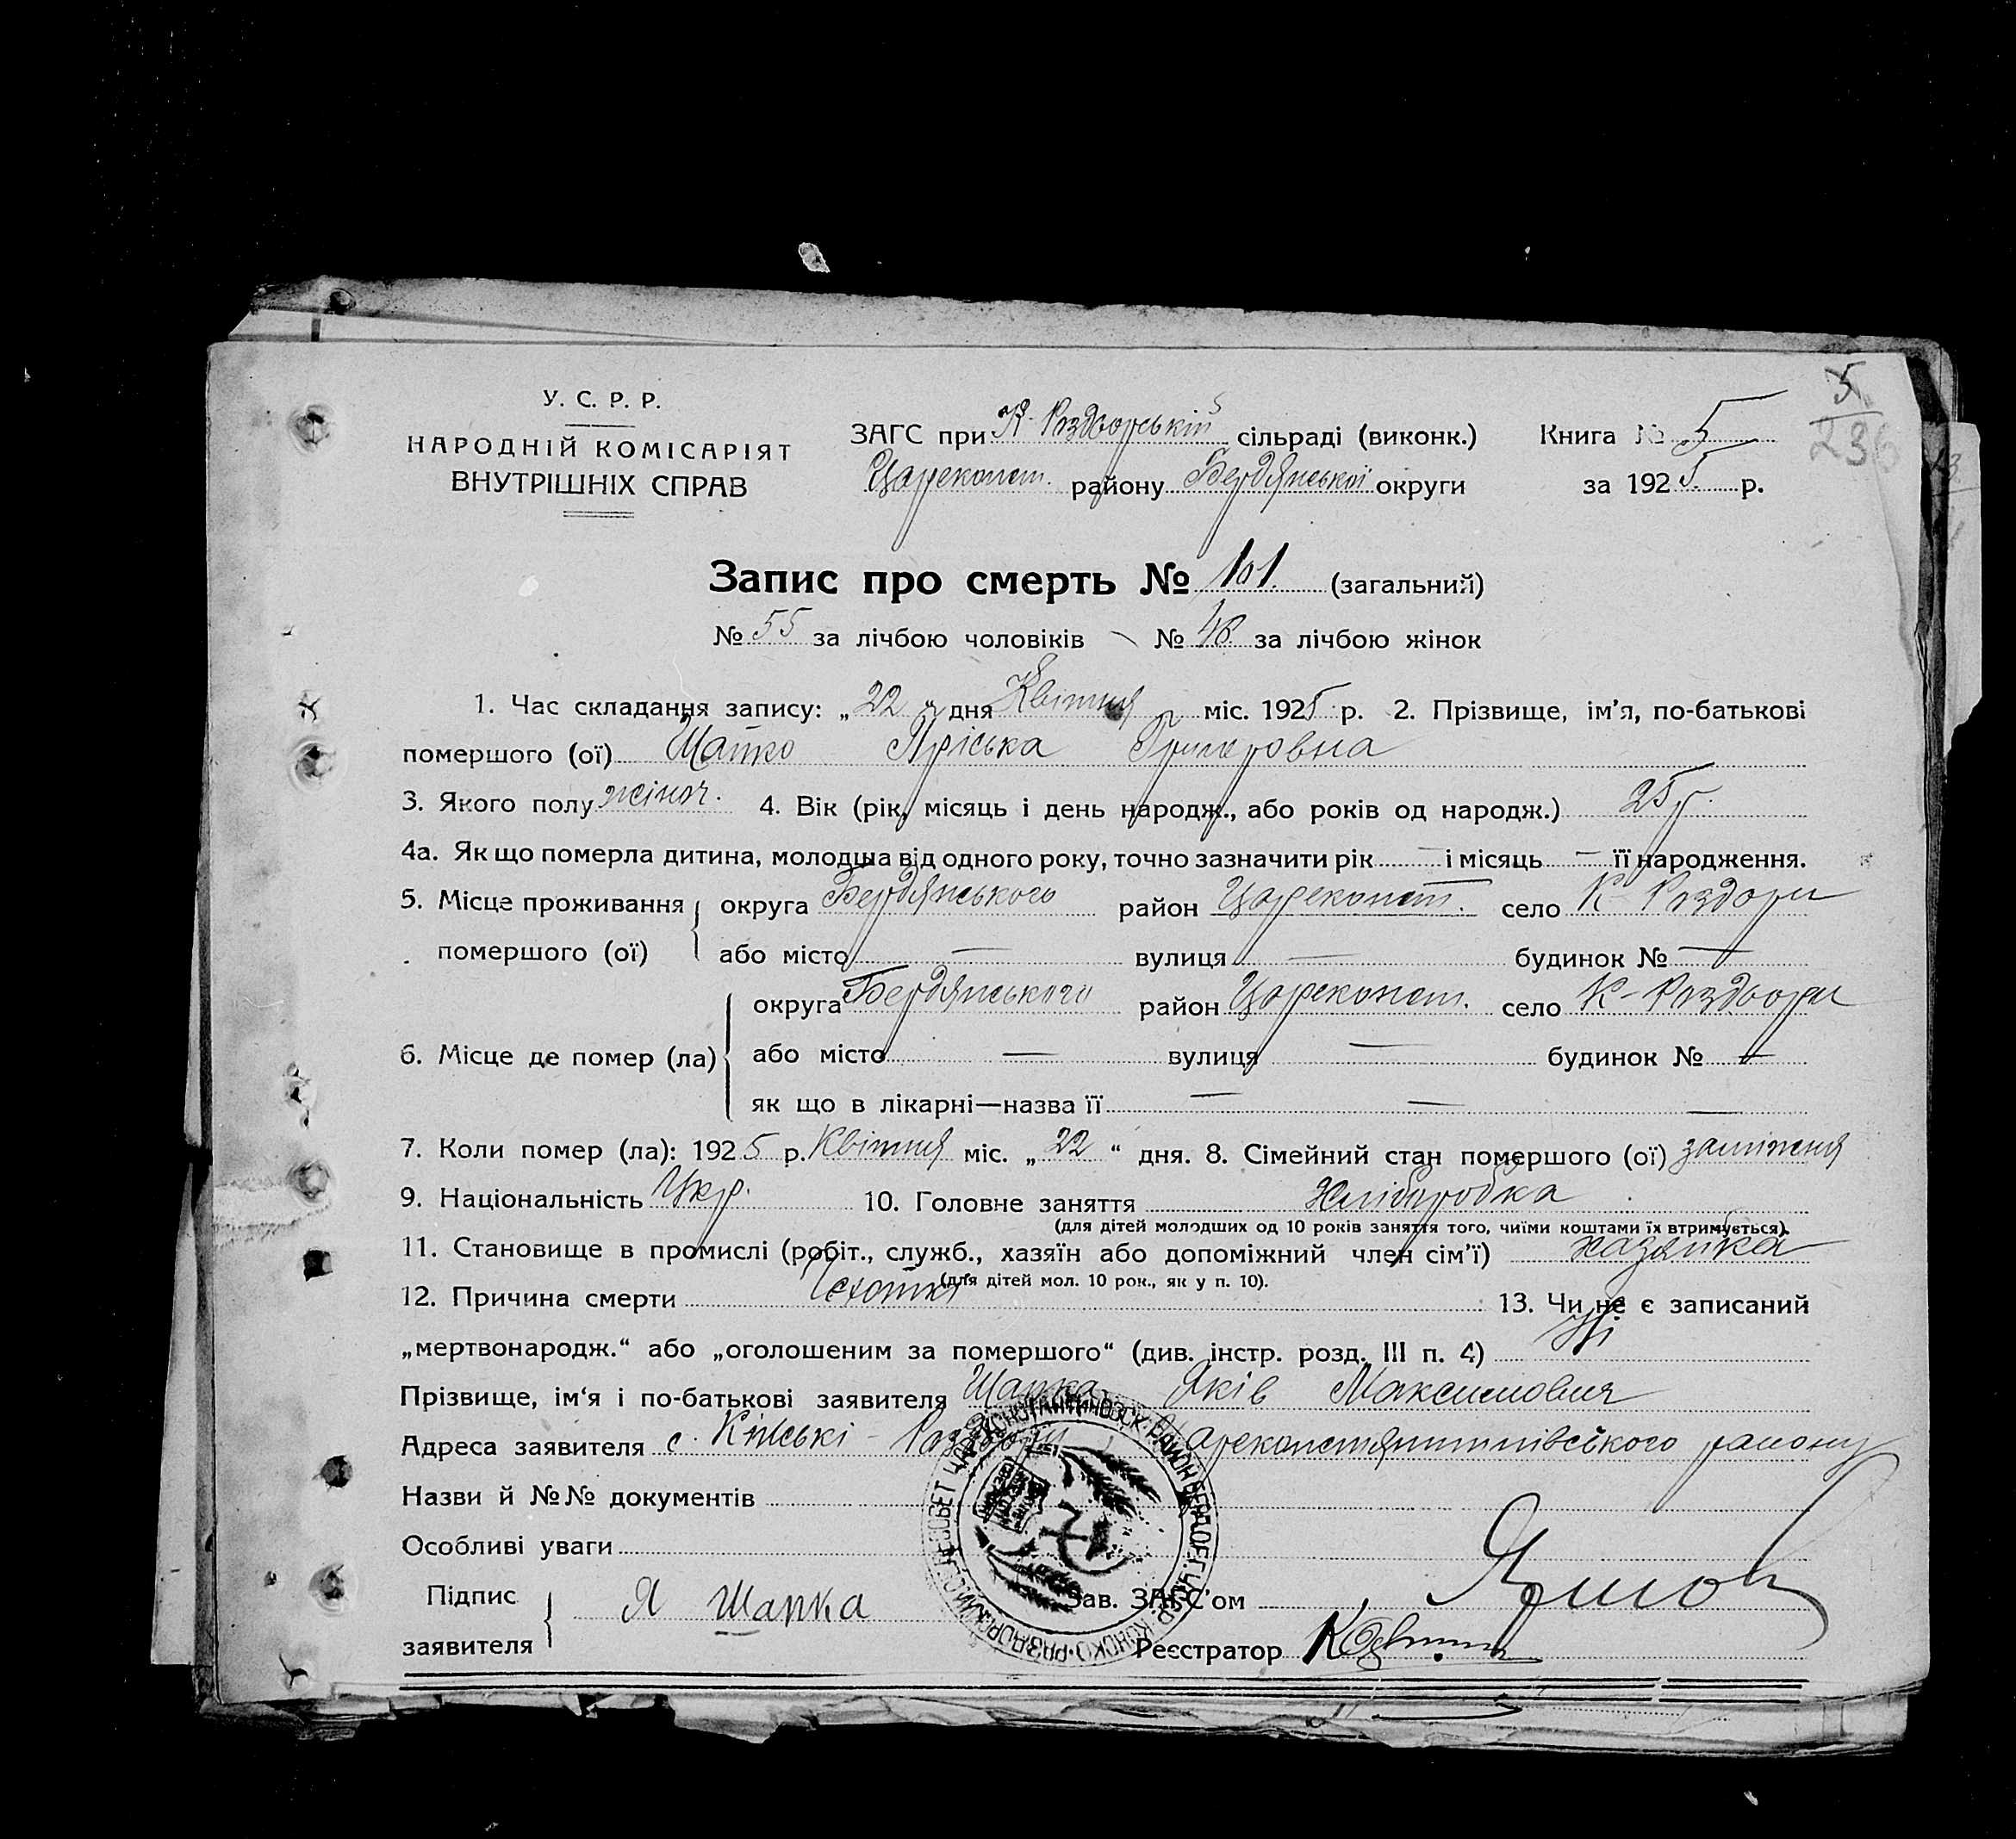 У. С. Р. Р.
НАРОДНІЙ КОМІСАРІЯТ
ВНУТРІШНІХ СПРАВ
ЗАГС при К-Роздорській сільраді (виконк.)
Царекопст. району Бердянської округи
Книга № 5
за 1925 р.
5
236
Запис про смерть № 101 (загальний)
№ 55 за лічбою чоловіків № 46 за лічбою жінок
1. Час складання запису: „22“ дня Квітня міс. 1925 р. 2. Прізвище, ім'я, по-батькові
помершого (ої) Пріська
3. Якого полу жіноч. 4. Вік (рік, місяць і день народж., або років од народж.) 25 р.
4а. Як що померла дитина, молодша від одного року, точно зазначити рік — і місяць — її народження.
5. Місце проживання округа Бердянського район Цареконст. село К-Роздори
помершого (ої) або місто — вулиця — будинок № —
округа Бердянського район Цареконст. село К-Роздори
6. Місце де помер (ла) або місто — вулиця — будинок № —
як що в лікарні—назва її — — —
7. Коли помер (ла): 1925 р. Квітня міс. „22“ дня. 8. Сімейний стан помершого (ої) заміжня
9. Національність Укр. 10. Головне заняття Хліборобка
(для дітей молодших од 10 років заняття того, чиїми коштами їх втримується).
11. Становище в промислі (робіт., служб., хазяїн або допоміжний член сім'ї) хазяйка
(для дітей мол. 10 рок., як у п. 10).
12. Причина смерти 13. Чи не є записаний
„мертвонародж.“ або „оголошеним за помершого“ (див. інстр. розд. III п. 4) Ні
Прізвище, ім'я і по-батькові заявителя Шапка Яків Максимович
Адреса заявителя с. Кінські-Роздори, Цареконстянтинівського району
Назви й №№ документів
Особливі уваги
Підпис
заявителя Я Шапка
Зав. ЗАГС'ом
Реєстратор